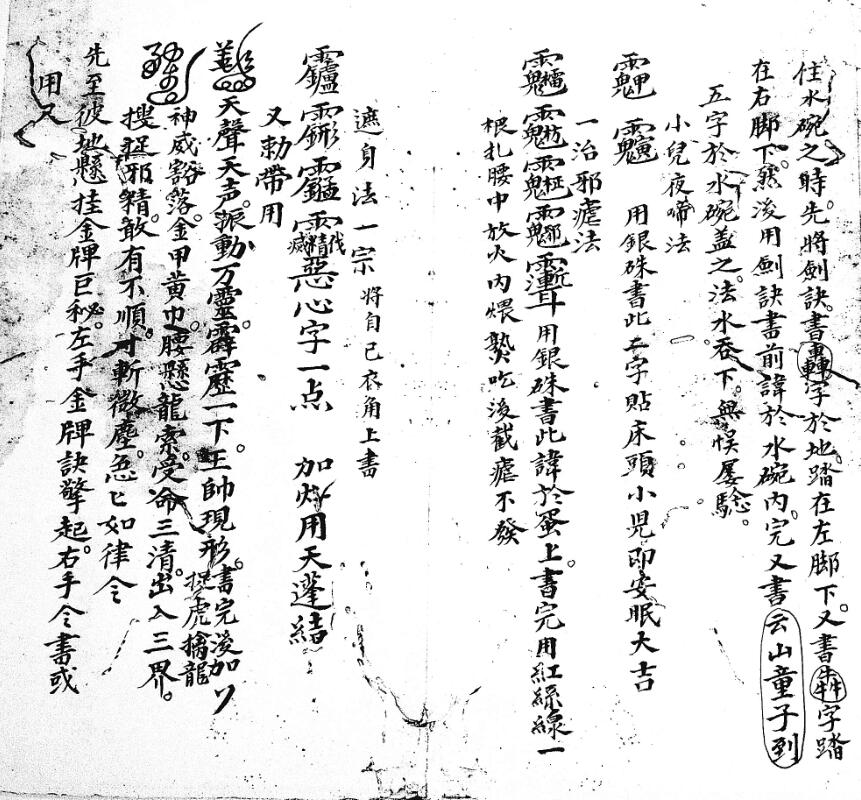 住水碗之時。先將劍訣。書轟字於地。踏在左脚下。又書犇字踏
在右脚下。然後用劍訣書前諱於水碗内。完又書云山童子到
五字於水碗盖之。法水吞下。無悮屢驗。
小兒夜啼法
用銀硃書此二字貼床頭小兒即安眠大吉
一治邪瘧法
用銀硃書此諱於蛋上。書完用紅絲線一
根扎腰中放火内煨吃後截瘧不發
遮身法一宗 將自己衣角上書
惡心字一点 加用天蓬結
又勅帶用
天聲天声。振動万靈。霹靂一下。王帥現形。書完後加
神威豁落。金甲黄巾。腰懸龍索。受命三清。出入三界。
捉虎擒龍
搜捉邪精。敢有不順。寸斬微塵。急匕如律令
先至彼地懸挂金牌巨秘。左手金牌訣擎起。右手令書或
用又